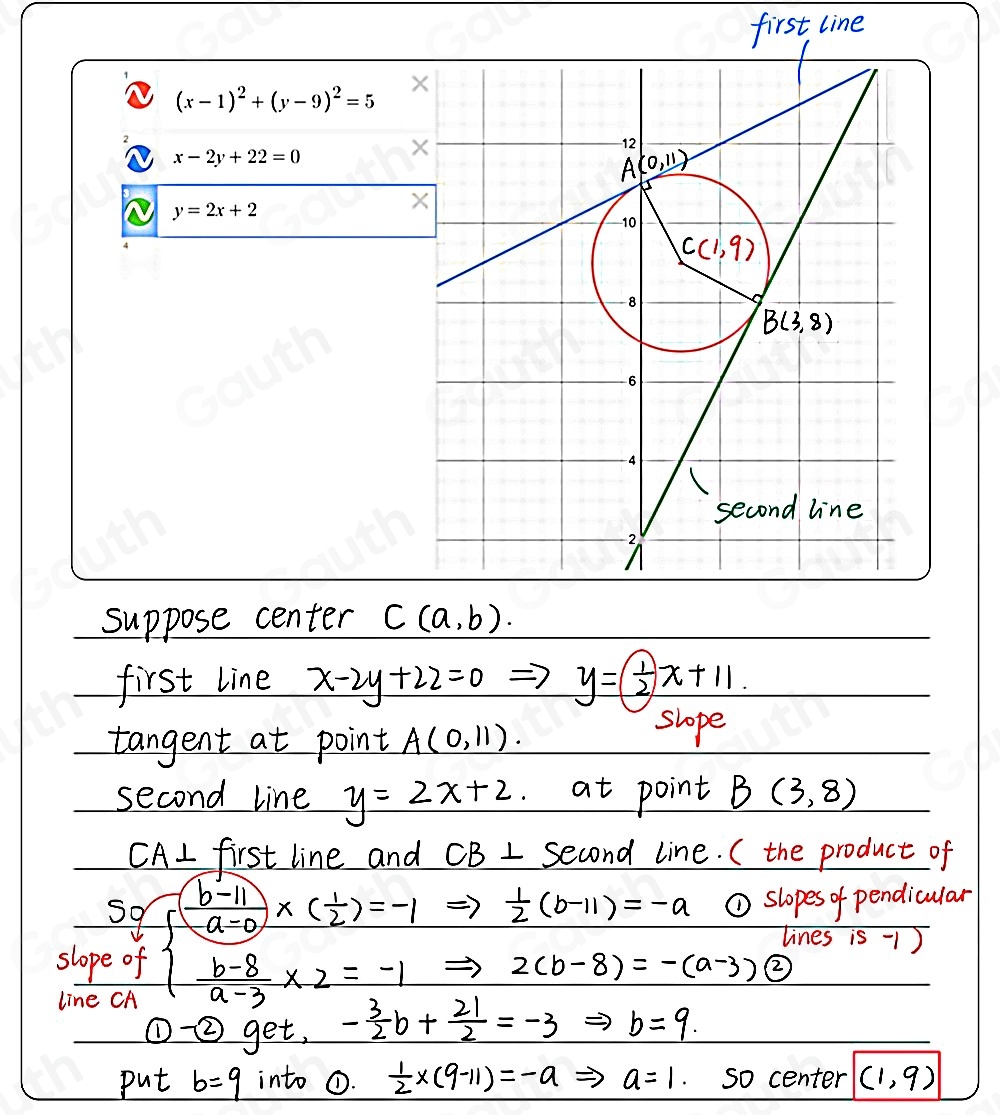 first line
1
(x − 1)² + (y − 9)² = 5
2
x − 2y + 22 = 0
3
y = 2x + 2
4
12
A(0,11)
10
C(1,9)
8
B(3,8)
6
4
second line
2
suppose center C (a,b).
first line x-2y+22=0 ⇒ y=½x+11.
slope
tangent at point A(0,11).
second line y= 2x+2. at point B (3,8)
CA⊥ first line and CB ⊥ second line. ( the product of
slopes of pendicular
lines is -1 )
so { (b-11)/(a-0) × (½) = -1 ⇒ ½(b-11) = -a ①
slope of
line CA
(b-8)/(a-3) × 2 = -1 ⇒ 2(b-8) = -(a-3) ②
①-② get, -3/2b + 21/2 = -3 ⇒ b=9.
put b=9 into ①. ½×(9-11)=-a ⇒ a=1. so center (1,9)
Gauth